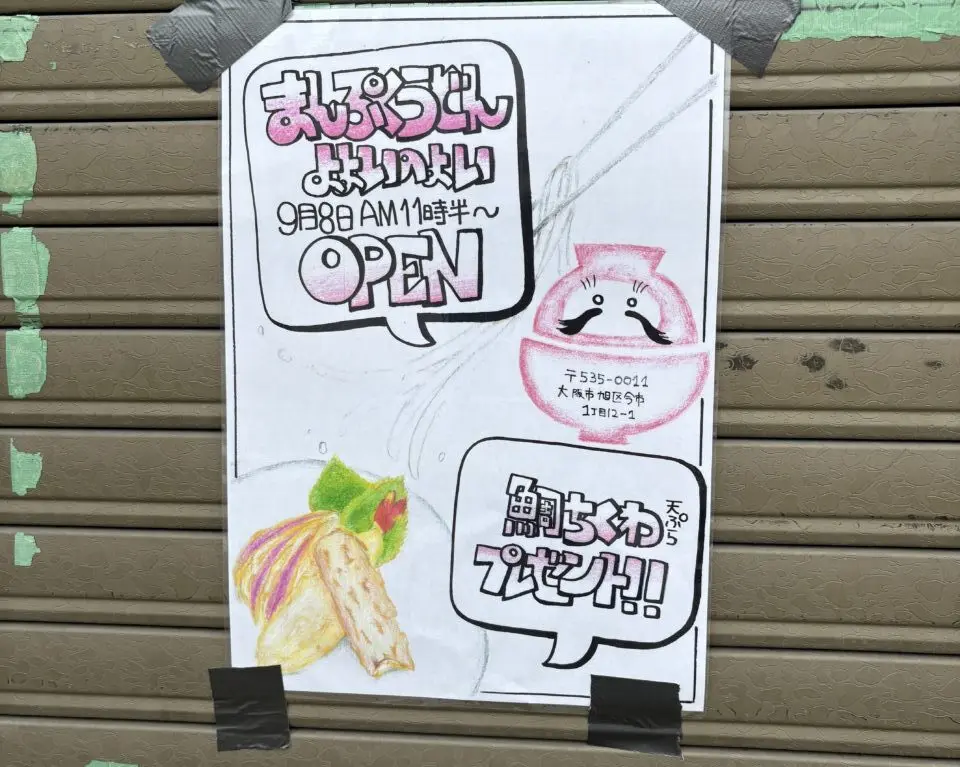 まんぷくうどん
よよいのよい
9月8日 AM11時半～
OPEN
〒535-0011
大阪市旭区今市
1丁目12-1
鯛ちくわ天ぷら
プレゼント!!